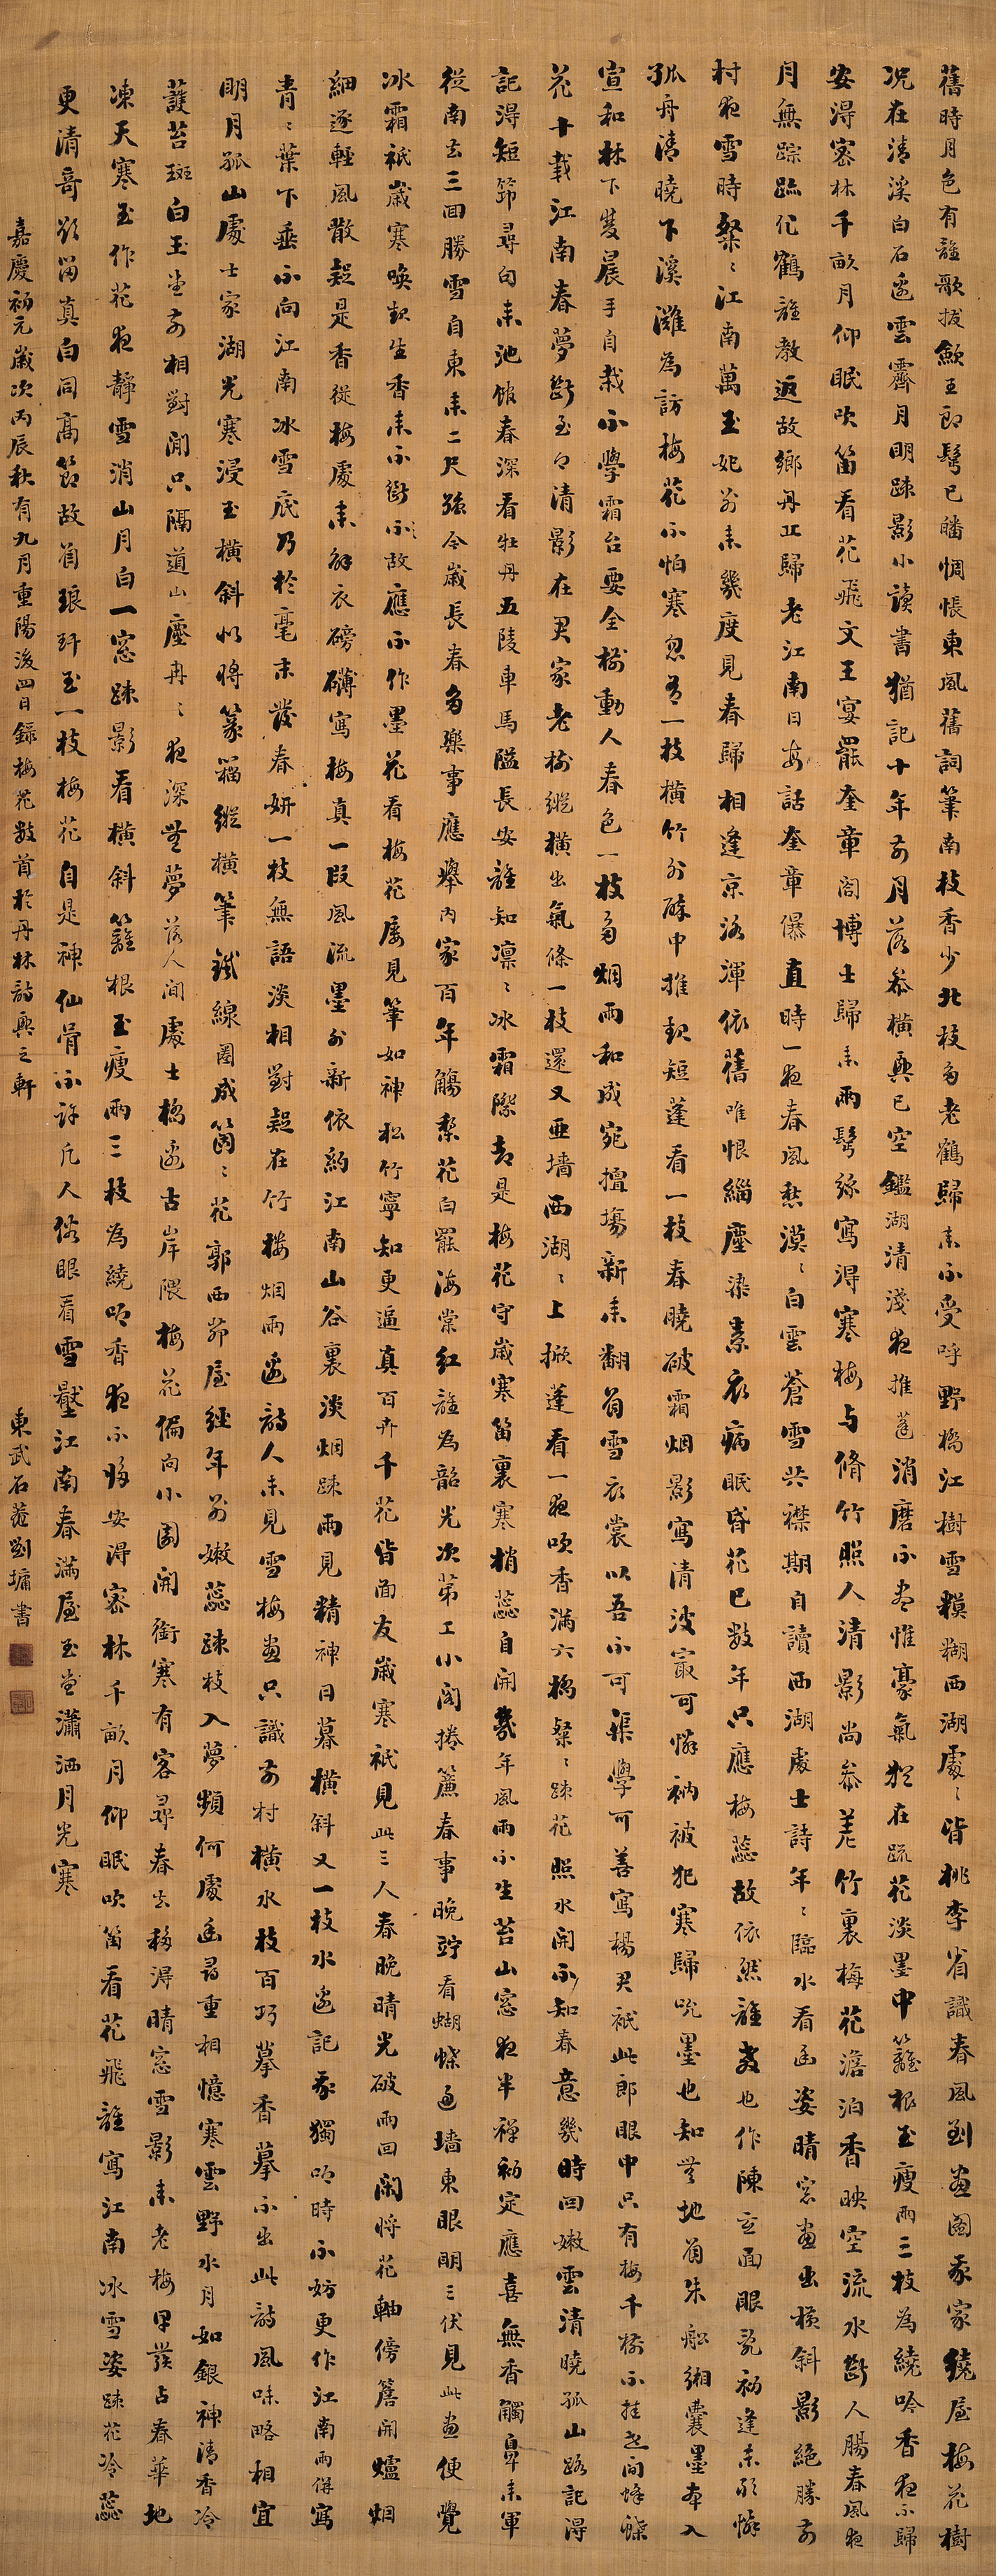 舊時月色有誰歌拔歛王郎鬢已皤惆悵東風舊詞筆南枝香少北枝多老鶴歸來不受呼野橋江樹雪糢糊西湖處〻皆桃李省識春風到畫圖我家繞屋梅花樹
況在清溪白石邊雲霽月明踈影小讀書猶記十年前月落參橫興已空鑑湖清淺夜推蓬消磨不盡惟豪氣猶在疏花淡墨中籬根玉瘦兩三枝為繞吟香夜不歸
安得密林千畝月仰眠吹笛看花飛文王宴罷奎章閣博士歸來兩鬢絲寫得寒梅與脩竹照人清影尚參差竹裏梅花澹泊香映空流水斷人腸春風夜
月無踪跡化鶴誰教返故鄉丹丘歸老江南日每話奎章儤直時一夜春風愁漠〻白雲蒼雪共襟期自讀西湖處士詩年〻臨水看幽姿晴窓畫出橫斜影絕勝前
村夜雪時粲〻江南萬玉妃別來幾度見春歸相逢京洛渾依舊唯恨緇塵染素衣病眠昏花已數年只應梅蕊故依然誰教也作陳玄面眼亂初逢未敢憐
孤舟清曉下溪灘為訪梅花不怕寒忽有一枝橫竹外醉中推起短蓬看一枝春曉破霜烟影寫清波最可憐衲被犯寒歸吮墨也知無地著朱鉛緗囊墨本入
宣和林下雙晨手自栽不學霜台要全樹動人春色一枝多烟雨和成宛擅場新來翻著雪衣裳以吾不可渠學可善寫楊君祇此郎眼中只有梅千樹不挂世間蜂蝶
花十載江南春夢斷玉〻清影在君家老樹縱橫出氣條一枝還又亞墻西湖〻上掀蓬看一夜吹香滿六橋粲〻踈花照水開不知春意幾時回嫩雲清曉孤山路記得
記得短笻尋句來池館春深看牡丹五陵車馬隘長安誰知凜〻冰霜際卻是梅花守歲寒笛裏寒梢蕊自開幾年風雨不生苔山窓夜半禪初定應喜無香觸鼻來軍
從南去三回勝雪自東來二尺強今歲長春多樂事應舉內家百年觴梨花白罷海棠紅誰為韶光次第工小閣捲簾春事晚竚看蝴蝶過墻東眼明三伏見此畫便覺
冰霜袛歲寒喚起生香來不斷不故應不作墨花看梅花屢見筆如神松竹寧知更逼真百卉千花皆面友歲寒袛見此三人春晚晴光破雨回閑將花軸傍簷開爐烟
細逐輕風散疑是香從梅處來解衣磅礴寫梅真一段風流墨外新依約江南山谷裏淡烟踈雨見精神日暮橫斜又一枝水邊記我獨吟時不妨更作江南雨併寫
青〻葉下垂不向江南冰雪底乃於毫末發春妍一枝無語淡相對疑在竹樓烟雨邊詩人未見雪梅畫只識前村橫水枝百巧摹香摹不出此詩風味略相宜
明月孤山處士家湖光寒浸玉橫斜似將篆籀縱橫筆鐵線圈成箇〻花郭西茆屋經年別嫩蕊踈枝入夢頻何處幽尋重相憶寒雲野水月如銀神清香冷
護苔斑白玉堂前相對閒只隔道山塵冉〻夜深無夢落人間處士橋邊古岸隈梅花偏向小園開銜寒有客尋春去移得晴窓雪影來老梅早發占春華地
凍天寒玉作花夜靜雪消山月白一窓踈影看橫斜籬根玉瘦兩三枝為繞吟香夜不歸安得密林千畝月仰眠吹笛看花飛誰寫江南冰雪姿踈花冷蕊
更清奇欲留真白同高節故著琅玕玉一枝梅花自是神仙骨不許凡人俗眼看雪壓江南春滿屋玉堂瀟洒月光寒
嘉慶初元歲次丙辰秋有九月重陽後四日錄梅花數首於丹林詩興之軒
東武石菴劉墉書